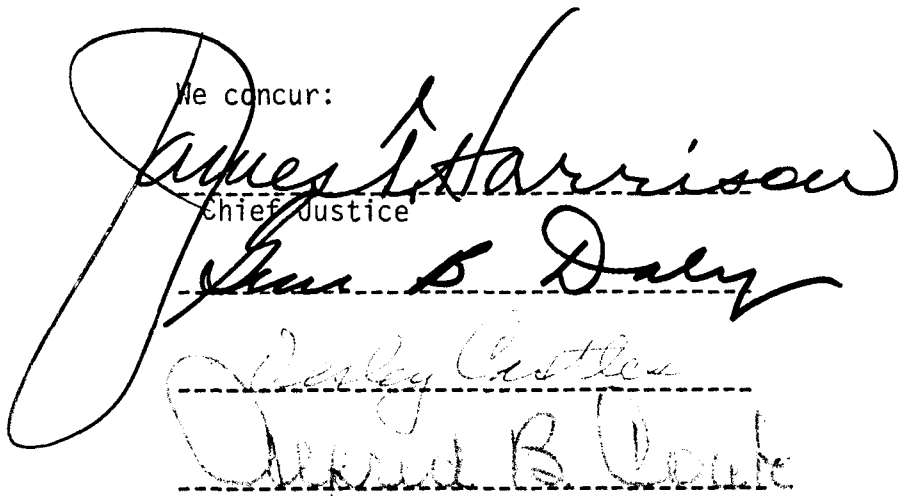 We concur:
James T. Harrison
Chief Justice
Gene B Daly
Wesley Castles
Alfred B Coate